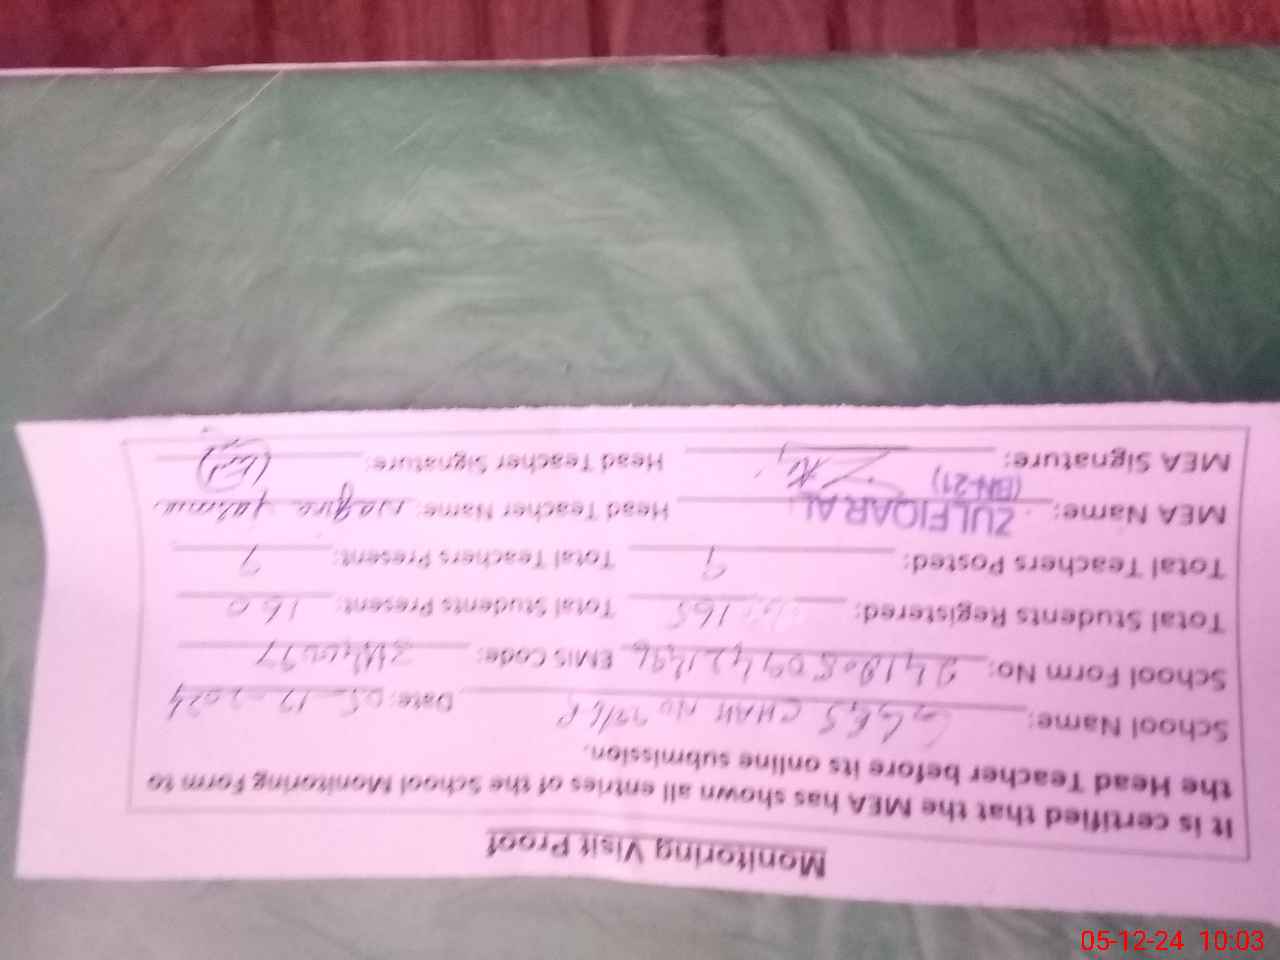 Monitoring Visit Proof
It is certified that the MEA has shown all entries of the School Monitoring Form to
the Head Teacher before its online submission.
School Name: CHAH NO Date: 05-12-2024
School Form No: EMIS Code:
Total Students Registered: 165 Total Students Present: 160
Total Teachers Posted: 9 Total Teachers Present: 9
MEA Name: ZULFIQAR AL Head Teacher Name:
(BN-21)
MEA Signature: Head Teacher Signature:
05-12-24 10:03